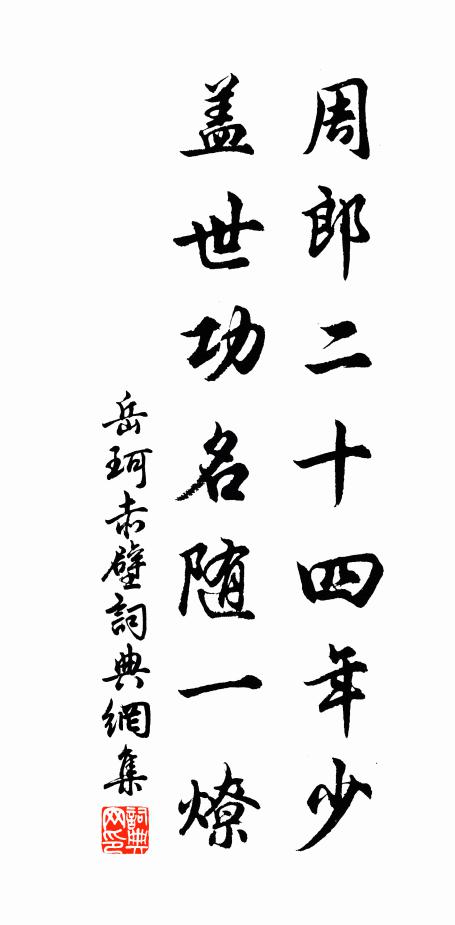 周郎二十四年少
盖世功名随一燎
岳珂赤壁詞典網集
詞典网印